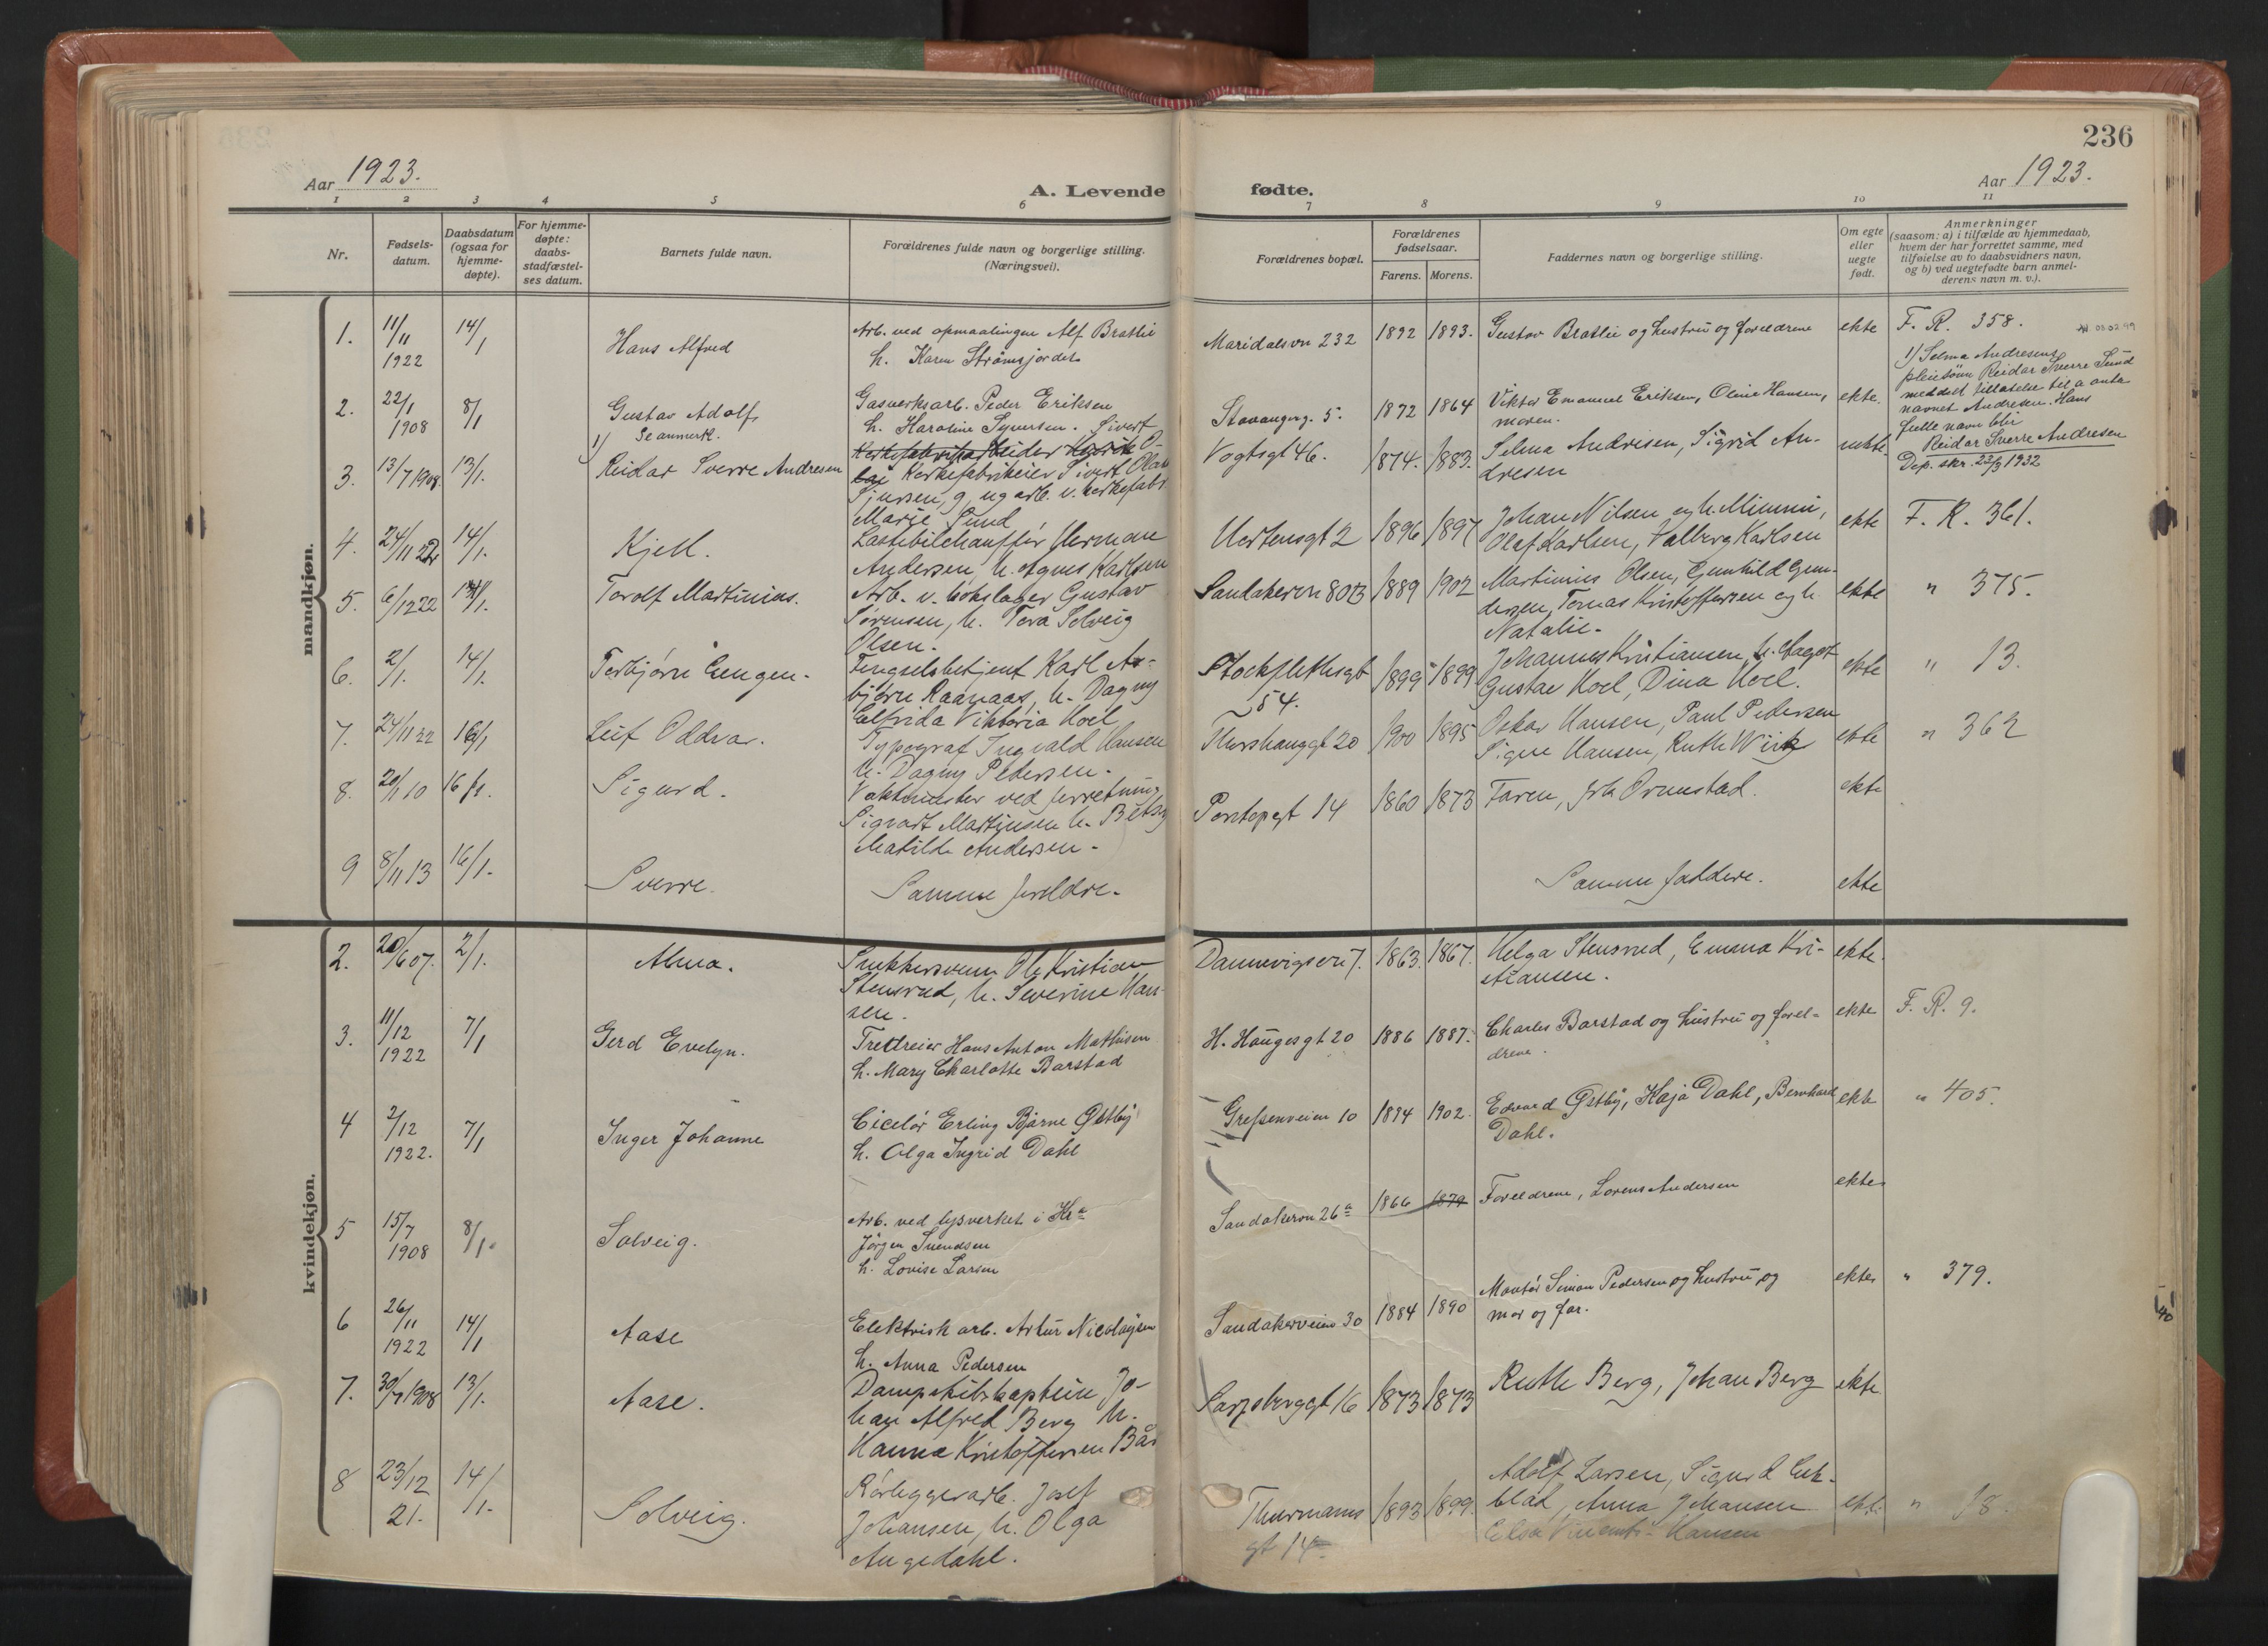 236
Aar 1923.
A. Levende fødte.
Aar 1923.
1 2 3 4 5 6 7 8 9 10 11
Nr.
Fødsels-
datum.
Daabsdatum
(ogsaa for
hjemme-
døpte).
For hjemme-
døpte:
daabs-
stadfæstel-
ses datum.
Barnets fulde navn.
Forældrenes fulde navn og borgerlige stilling.
(Næringsvei).
Forældrenes bopæl.
Forældrenes
fødselsaar.
Farens. Morens.
Faddernes navn og borgerlige stilling.
Om egte
eller
uegte
født.
Anmerkninger
(saasom: a) i tilfælde av hjemmedaab,
hvem der har forrettet samme, med
tilføielse av to daabsvidners navn,
og b) ved uegtefødte barn anmel-
derens navn m. v.).
mandkjøn.
1. 11/11 1922 14/1 Hans Alfred
Arb. ved opmaalingen Alf Bratlie
h. Karen Strömsjordet
Maridalsvn 232 1892 1893. Gustav Bratlie og hustru og foreldrene ekte F. R. 358.
2. 22/1 1908 8/1 Gustav Adolf
Gasverksarb. Peder Eriksen
h. Karoline Syversen.
Stavangerg. 5. 1872 1864 Viktor Emanuel Eriksen, Oline Hansen,
moren. ekte.
1) Selma Andresens
pleiesönn Reidar Sverre Sund
meddelt tillatelse til a anta
navnet Andresen. Hans
fulle navn blir
Reidar Sverre Andresen
Dep. skr. 23/3 1932
1) Se anmerk.
3. 13/7 1908. 13/1. Reidar Sverre Andresen
Sivert O-
lai Korkefabrikeier Sivert Olai
Sjursen, g, ug arb. v. korkefabr.
Marie Sund
Vogtsgt 46. 1874. 1883. Selma Andresen, Sigrid An-
dresen uekte.
4. 24/11 22 14/1. Kjell.
Lastebilchauffør Herman
Andersen, h. Agnes Karlsen
Hertensgt 2 1896 1897 Johan Nilsen og h. Mimmi,
Olaf Karlsen, Valborg Karlsen ekte F. R. 361.
5. 6/12 22 14/1. Torolf Martinius.
Arb. v. kokslager Gustav
Sørensen, h. Tora Solveig
Olsen.
Sandakervn 80B 1889 1902 Martinius Olsen, Gunhild Gun-
dersen, Tomas Kristoffersen og h.
Natalie. ekte " 375.
6. 2/1. 14/1. Torbjørn Eugen.
Fengselsbetjent Karl Ar-
bjørn Raanaas, h. Dagny
Elfrida Viktoria Hoel
Stockflethsgt
54. 1899 1899 Johannes Kristiansen, h. Magot
Gustav Hoel, Dina Hoel. ekte " 13.
7. 24/11 22 16/1 Leif Oddvar.
Typograf Ingvald Hansen
h. Dagny Pedersen.
Thorshauggt 20 1900 1895 Oskar Hansen, Paul Pedersen
Signe Hansen, Ruth Wirtz ekte " 362
8. 16/1. Sigurd.
Vaktmester ved forretning
Sigvart Martinsen h. Betsy
Matilde Andersen.
Pontopgt 14 1860 1873 Faren, frk Ormestad. ekte
9 8/11 13 16/1. Sverre.
Samme foreldre.
Samme faddere. ekte
kvindekjøn.
2. 20/6 07. 2/1. Alma.
Snekkersvenn Ole Kristian
Stensrud, h. Severine Han-
sen.
Dannevigsvn 7. 1863. 1867. Helga Stensrud, Emma Kri-
stiansen. ekte.
3. 11/12 1922 7/1 Gerd Evelyn.
Hans Anton Mathisen
h. Mary Charlotte Barstad
H. Haugesgt 20 1886 1887. Charles Barstad og hustru og forel-
drene. ekte F. R. 9.
4 2/12 1922. 7/1 Inger Johanne
Ciselør Erling Bjarne Østby
h. Olga Ingrid Dahl
Grefsenveien 10 1894 1902. Edvard Østby, Kaja Dahl, Bernhard
Dahl. ekte " 405.
5 15/7 1908 8/1. Solveig.
Arb. ved lysverket i Kra
Jörgen Svendsen
h. Lovise Larsen
Sandakervn 26a 1866 1879 Foreldrene, Lorens Andersen ekte
6 26/11 1922 14/1 Aase
Elektrisk arb. Artur Nicolaysen
h. Anna Pedersen
Sandakerveien 30 1884 1890 Montör Simon Pedersen og hustru og
mor og far. ekte " 379.
7. 30/7 1908 13/1. Aase.
Dampskibskaptein Jo-
han Alfred Berg h.
Hanna Kristoffersen Bås
Sarpsborggt 16 1873 1873 Ruth Berg, Johan Berg ekte.
8 23/12 21. 14/1. Solveig.
Rørleggerarb. Josef
Johansen, h. Olga
Angedahl.
Thurmanns
gt 14 1893 1899. Adolf Larsen, Sigurd Eek-
blad, Anna Johansen
Elsa Hansen ekte " 18.